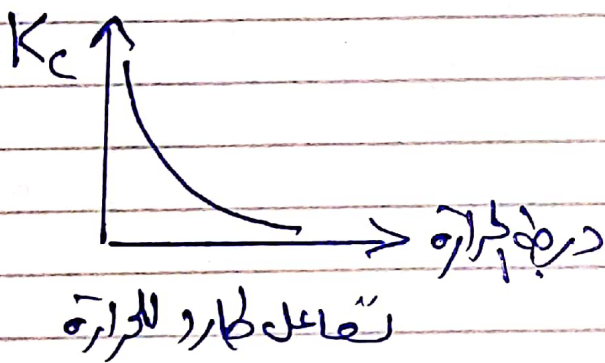 Kc
درجة الحرارة
تفاعل طارد للحرارة